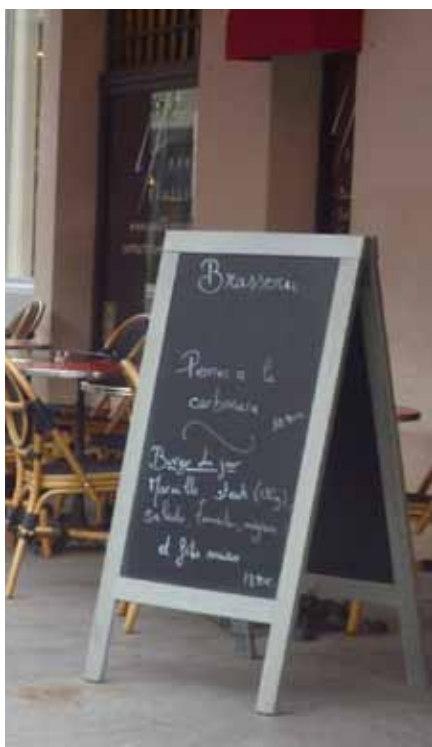 Brasserie
Pennes a la
carbonara
Burger du jour
steak
salade, tomate, oignons
et frites maison